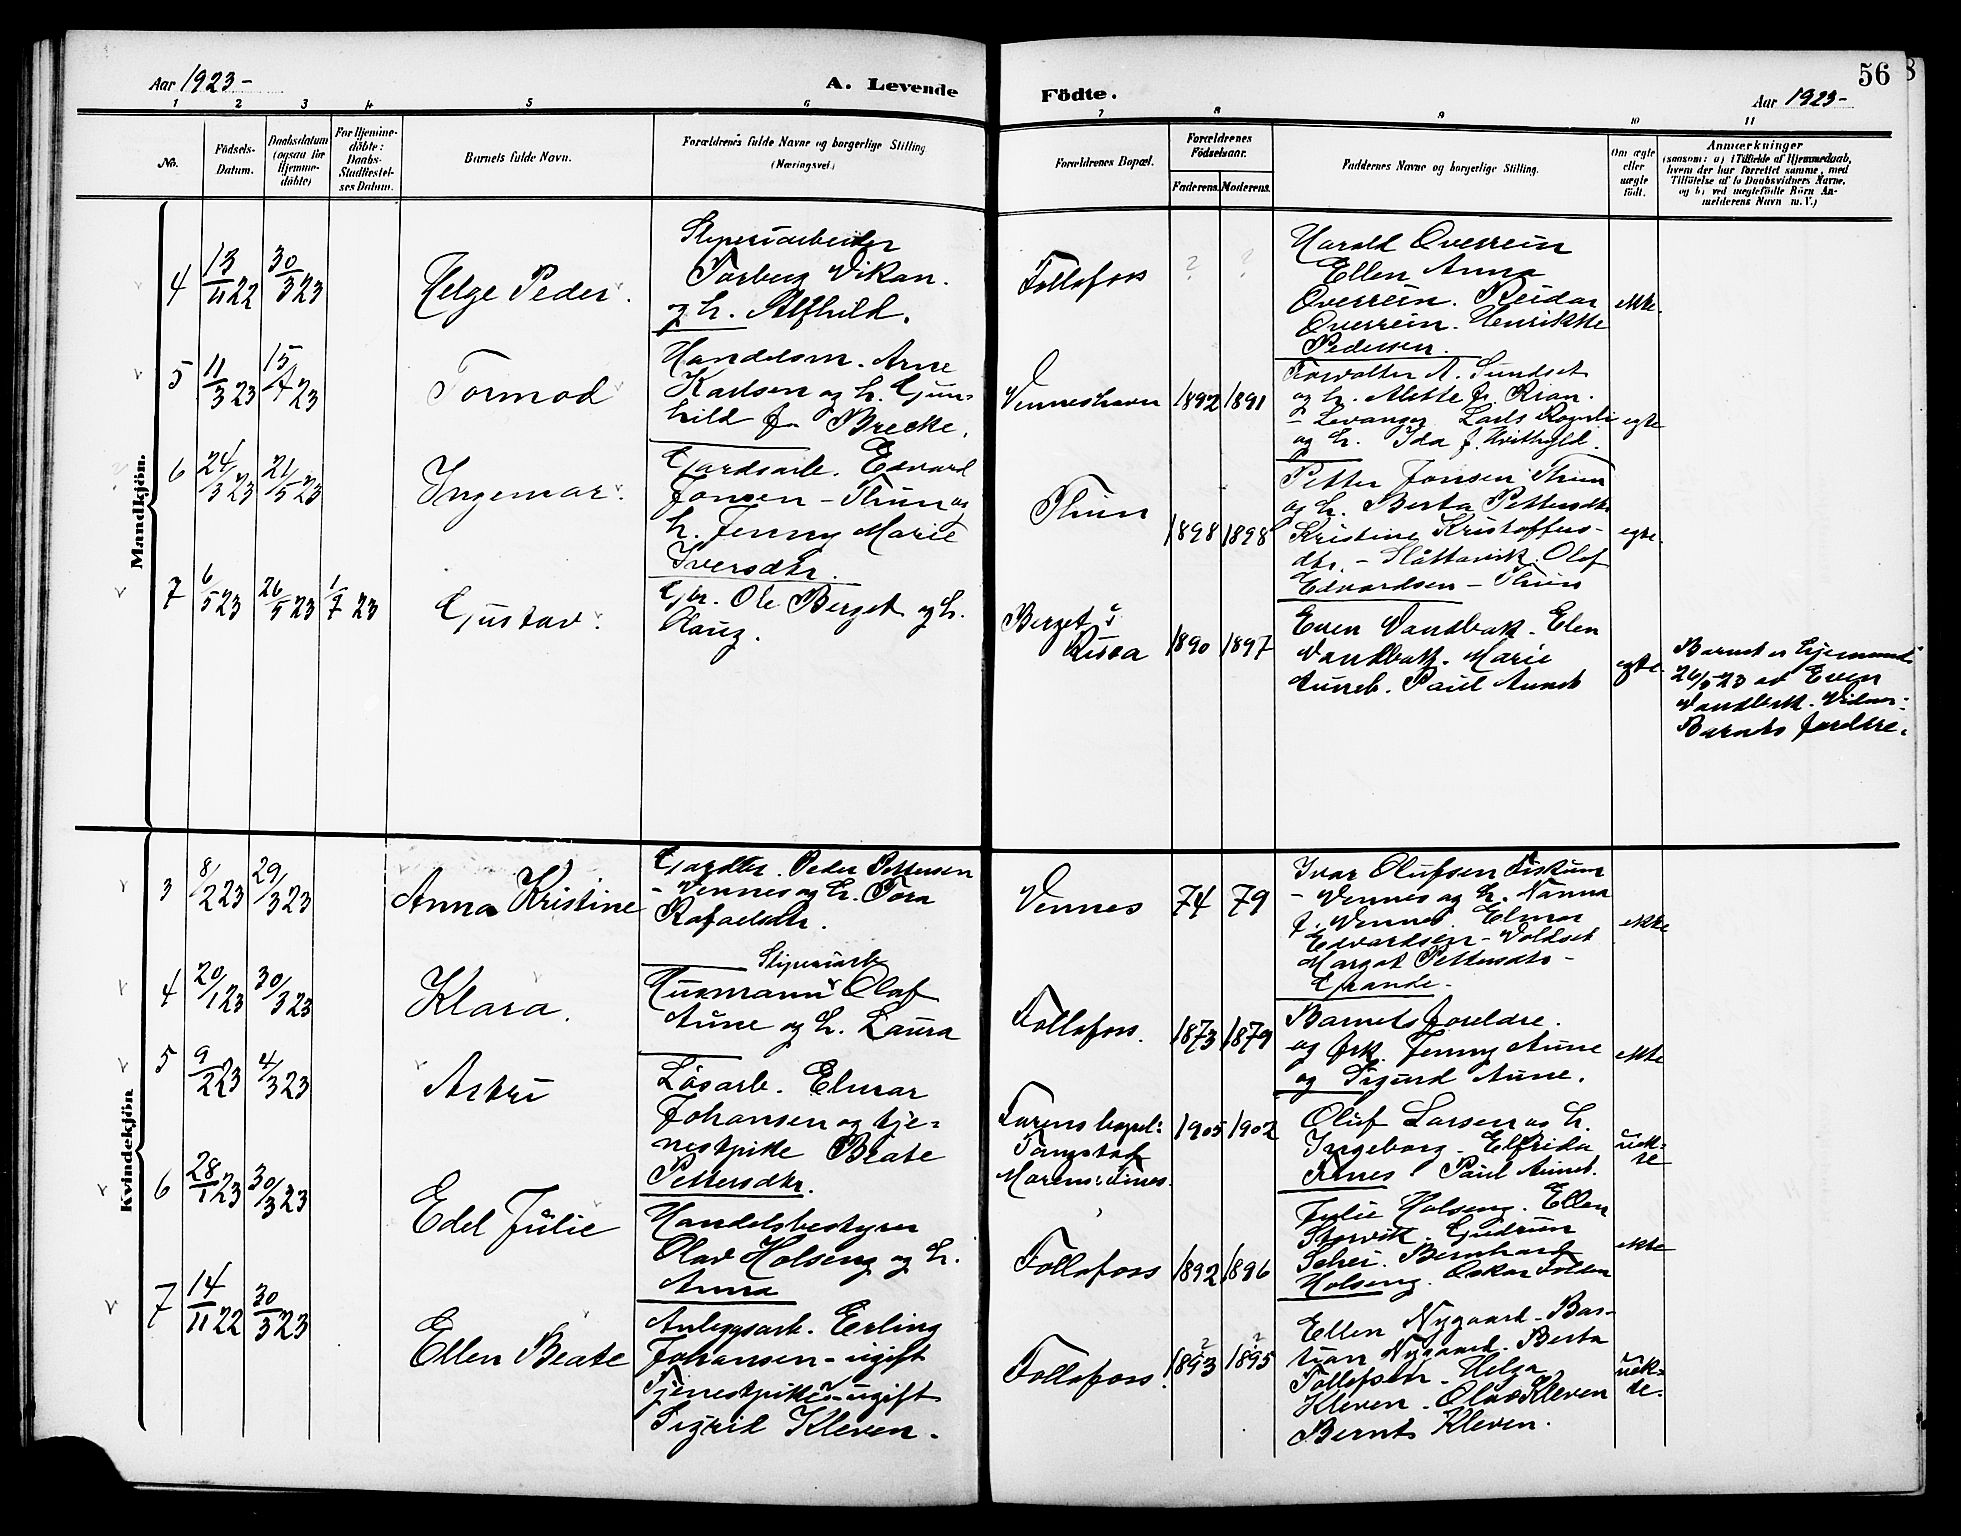 Aar 1923-
A. Levende
Födte.
56
Aar 1923-
1 2 3 4 5 6 7 8 9 10 11
No.
Födsels-
Datum.
Daabsdatum
(ogsaa for
Hjemme-
döbte)
For Hjemme-
döbte:
Daabs-
Stadfæstel-
ses Datum.
Barnets fulde Navn.
Forældrenes fulde Navne og borgerlige Stilling
(Næringsvei)
Forældrenes Bopæl.
Forældrenes
Födselsaar.
Faderens. Moderens.
Faddernes Navne og borgerlige Stilling.
Om ægte
eller
uægte
födt.
Anmærkninger
(saasom: a) i Tilfælde af Hjemmedaab,
hvem der har forrettet samme, med
Tilföielse af to Daabsvidners Navne,
og b) ved uægtefödte Börn An-
melderens Navn m. V.)
Mandkjön.
4
13/11 22
30/3 23
Helge Peder.
Torberg Vikan.
og h. Alfhild.
Follafoss
? ?
Harald Overrein
Ellen Anna
Overrein. Reidar
Overrein. Henrikke
Pedersen.
ekte.
5
11/3 23
15/4 23
Tormod
Handelsm. Arne
Karlsen og h. Gun-
hild f. Brecke.
Venneshavn
1892 1891
Forvalter A. Sundset
og h. Alette f. Rian.
- Levanger Lars
og h. Ida f.
egte
6
24/3 23
21/5 23
Ingemar.
Gardsarb. Edvard
Jonsen - Thun og
h. Jenny Marie
Iversdtr.
Thun
1898 1898
Petter Jonsen Thun
og h. Berta Pettersdtr
Kristine Kristoffers-
dtr. - Slåttavik. Olof
Edvardsen - Thun
egte.
7
6/5 23
26/5 23
1/7 23
Gustav.
Gbr. Ole Berget og h.
Olaug.
Berget i
1890 1897
Even Vandbak. Elen
Vandbak. Marie
Auneb. Paul Aunet
egte.
Barnet er hjemmed.
26/5 23 av Even
Vandbak. Vidner:
Barnets foreldre.
Kvindekjön
3
8/2 23
29/3 23
Anna Kristine
Gardbr. Peder Pettersen
- Vennes og h. Tora
Rafaelsdtr.
Vennes
74 79
Ivar Olufsen Fiskum
- Vennes og h. Nanna
f. Vennes. Elmar
Edvardsen - Voldset
Margot Pettersdtr -
Grande.
ekte
4
20/1 23
30/3 23
Klara.
Sliperiarb
Husmann Olaf
Aune og h. Laura
Follafoss.
1873 1879
Barnets foreldre.
og frk. Jenny Aune
og Sigurd Aune.
ekte
5
9/2 23
4/3 23
Astri
Løsarb. Elmar
Johansen og tje-
nestpike Beate
Pettersdtr.
Farens bopel:
Tangstad
Morens: Fines.
1905 1902
Oluf Larsen og h.
Ingeborg. Elfrida
Fines Paul Aunet.
uek-
te
6
28/1 23
30/3 23
Edel Julie
Handelsbestyrer
Olav Holseng og h.
Anna
Follafoss
1892 1896
Julie Holseng. Ellen
Storvik. Gudrun
Schei. Bernhard
Holseng. Oskar Folden
ekte
7
14/11 22
30/3 23
Ellen Beate
Anleggsarb. Erling
Johansen - ugift
Tjenestpike - ugift
Sigrid Kleven.
Follafoss.
? ?
1893 1895
Ellen Nygaard. Bas-
tian Nygaard. Berta
Tollefsdtr. Helga
Kleven. Olav Kleven
Bernt Kleven.
uek-
te.